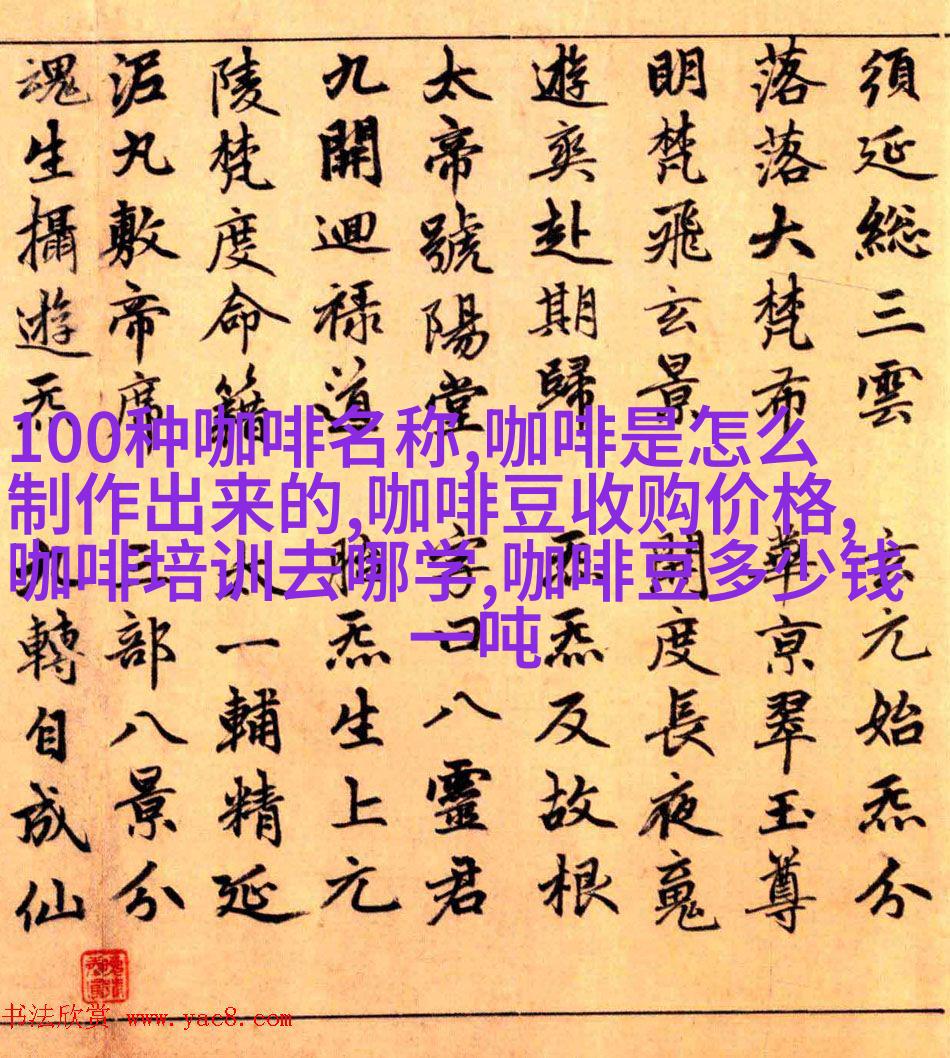 須延総三雲 玄元始炁分
落落大梵布 華京翠玉尊
明梵飛玄景 開度長夜魂
遊爽赴期歸 炁反故根
太帝號陽堂 字曰八靈君
九開迴祿道 炁生上元
陵梵度命籍 太一輔精延
泥丸敷帝席 三部八景分
魂生攝遊炁 九轉自成仙
100种咖啡名称,咖啡是怎么
制作出来的,咖啡豆收购价格,
咖啡培训去哪学,咖啡豆多少钱
一吨
书法欣赏 www.yac8.com